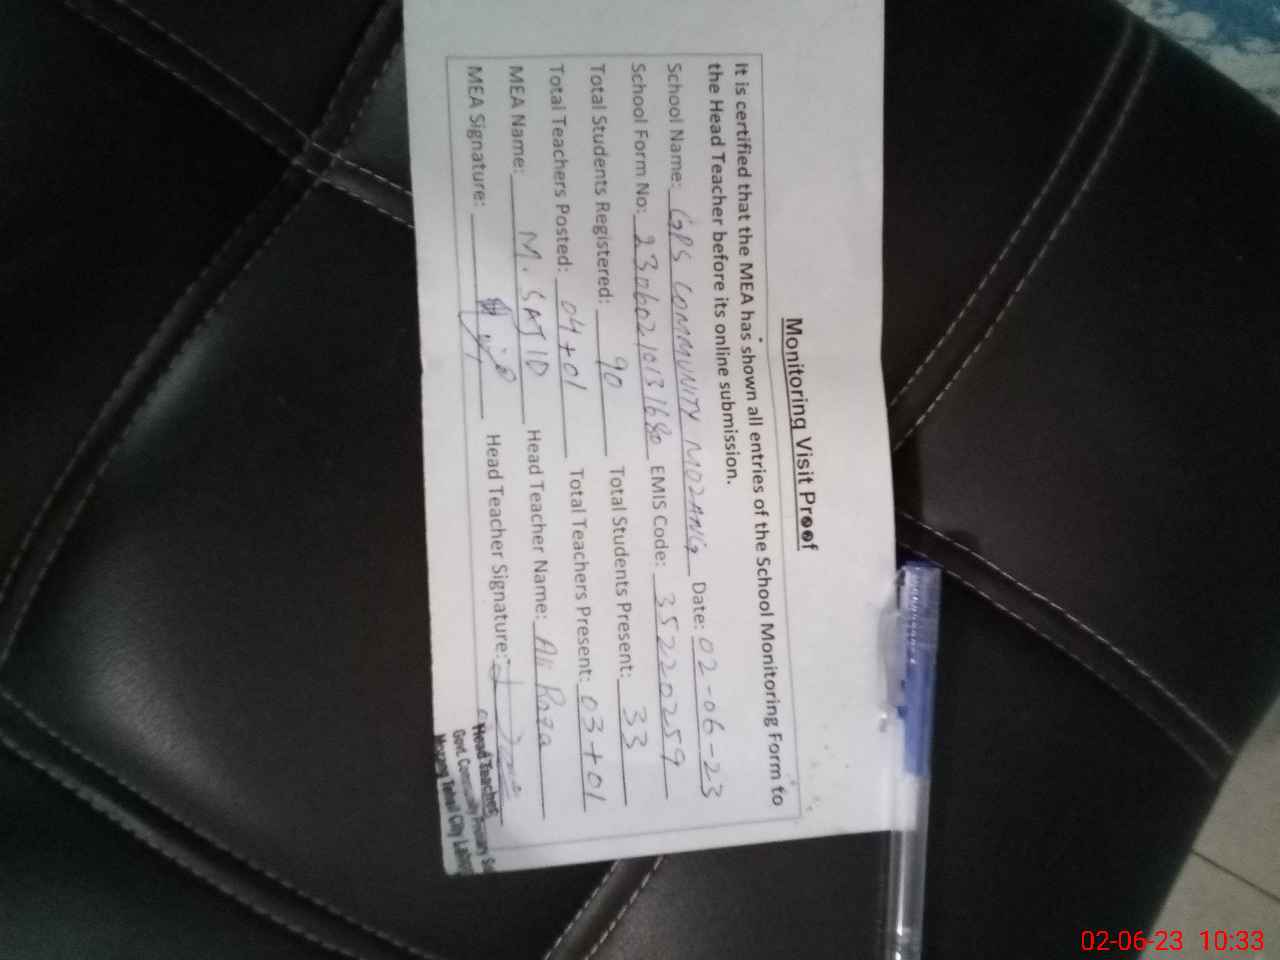 Monitoring Visit Proof
It is certified that the MEA has shown all entries of the School Monitoring Form to
the Head Teacher before its online submission.
School Name: GPS COMMUNITY MOZANG Date: 02-06-23
School Form No: 23060210131680 EMIS Code: 35220259
Total Students Registered: 90 Total Students Present: 33
Total Teachers Posted: 04+01 Total Teachers Present: 03+01
MEA Name: M. SAJID Head Teacher Name: Ali Raza
MEA Signature: Head Teacher Signature:
Head Teacher
Govt. Community Primary
Mozang Tehsil City
02-06-23 10:33